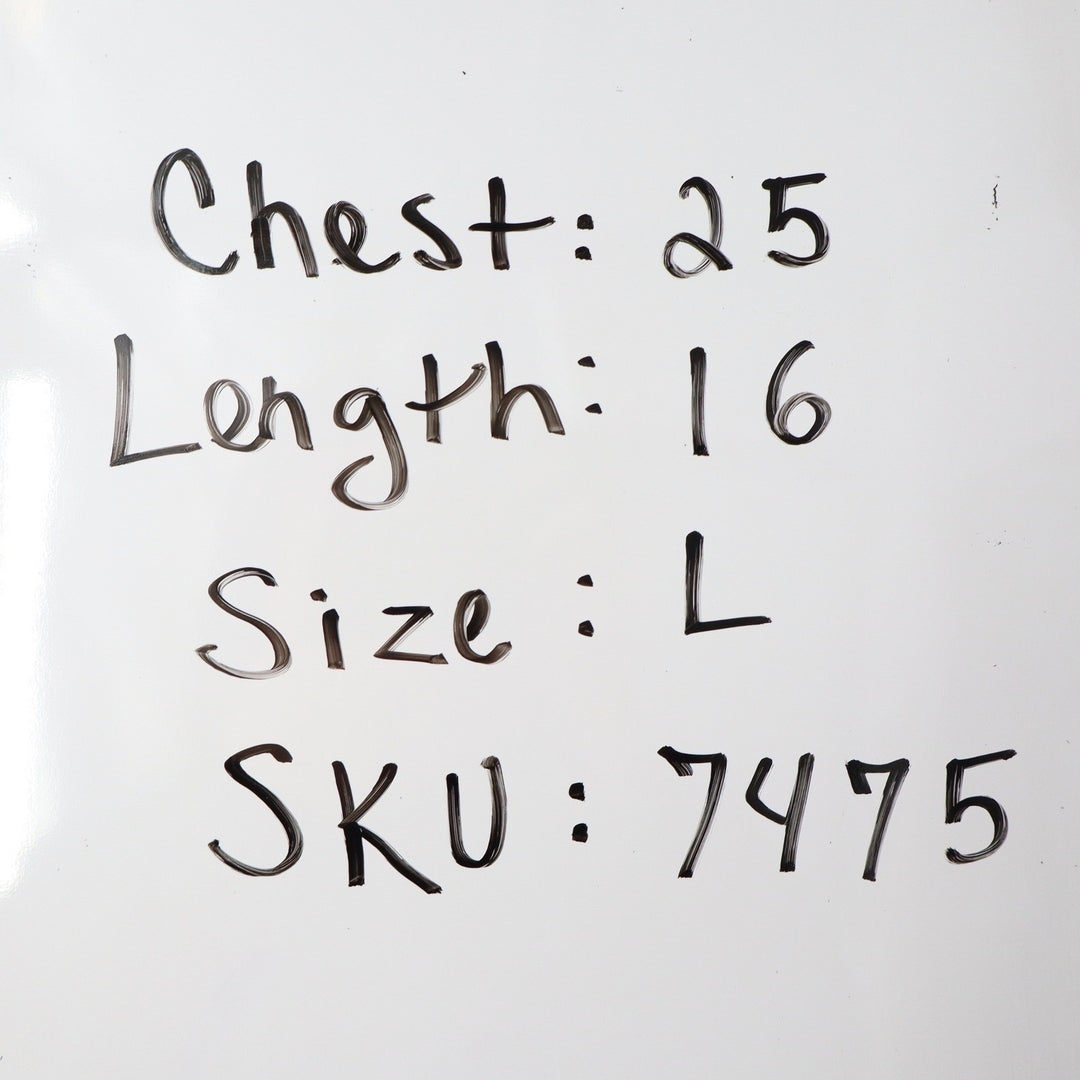 Chest: 25
Length: 16
Size: L
SKU: 7475